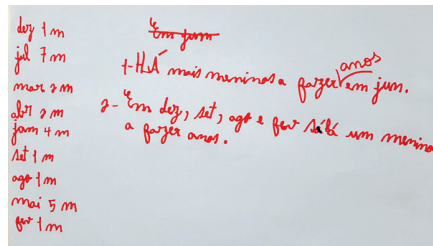 dez 1 m
jul 7 m
mar 2 m
abr 2 m
jan 4 m
set 1 m
ago 1 m
mai 5 m
fev 1 m
Em jum
1-HÁ mais meninos a fazer anos em jun.
2- Em dez, set, ago e fev só há um menino
a fazer anos.